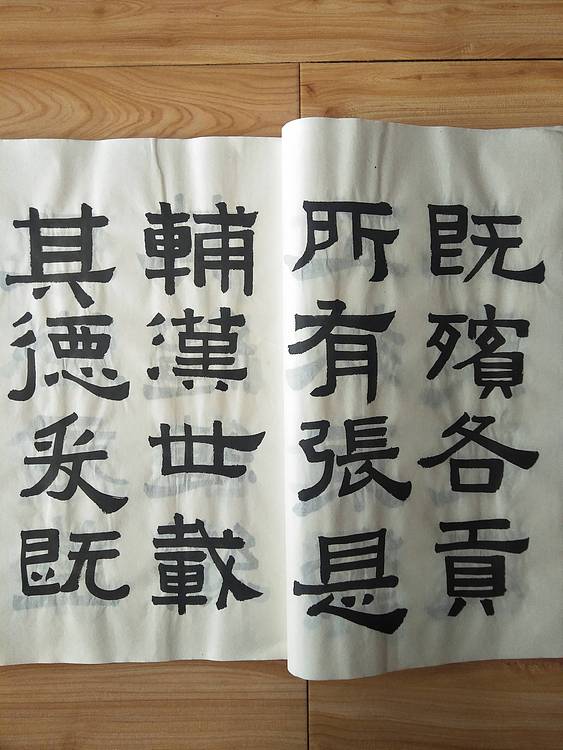 既殯各貢
所有張是
輔漢世載
其德爰既